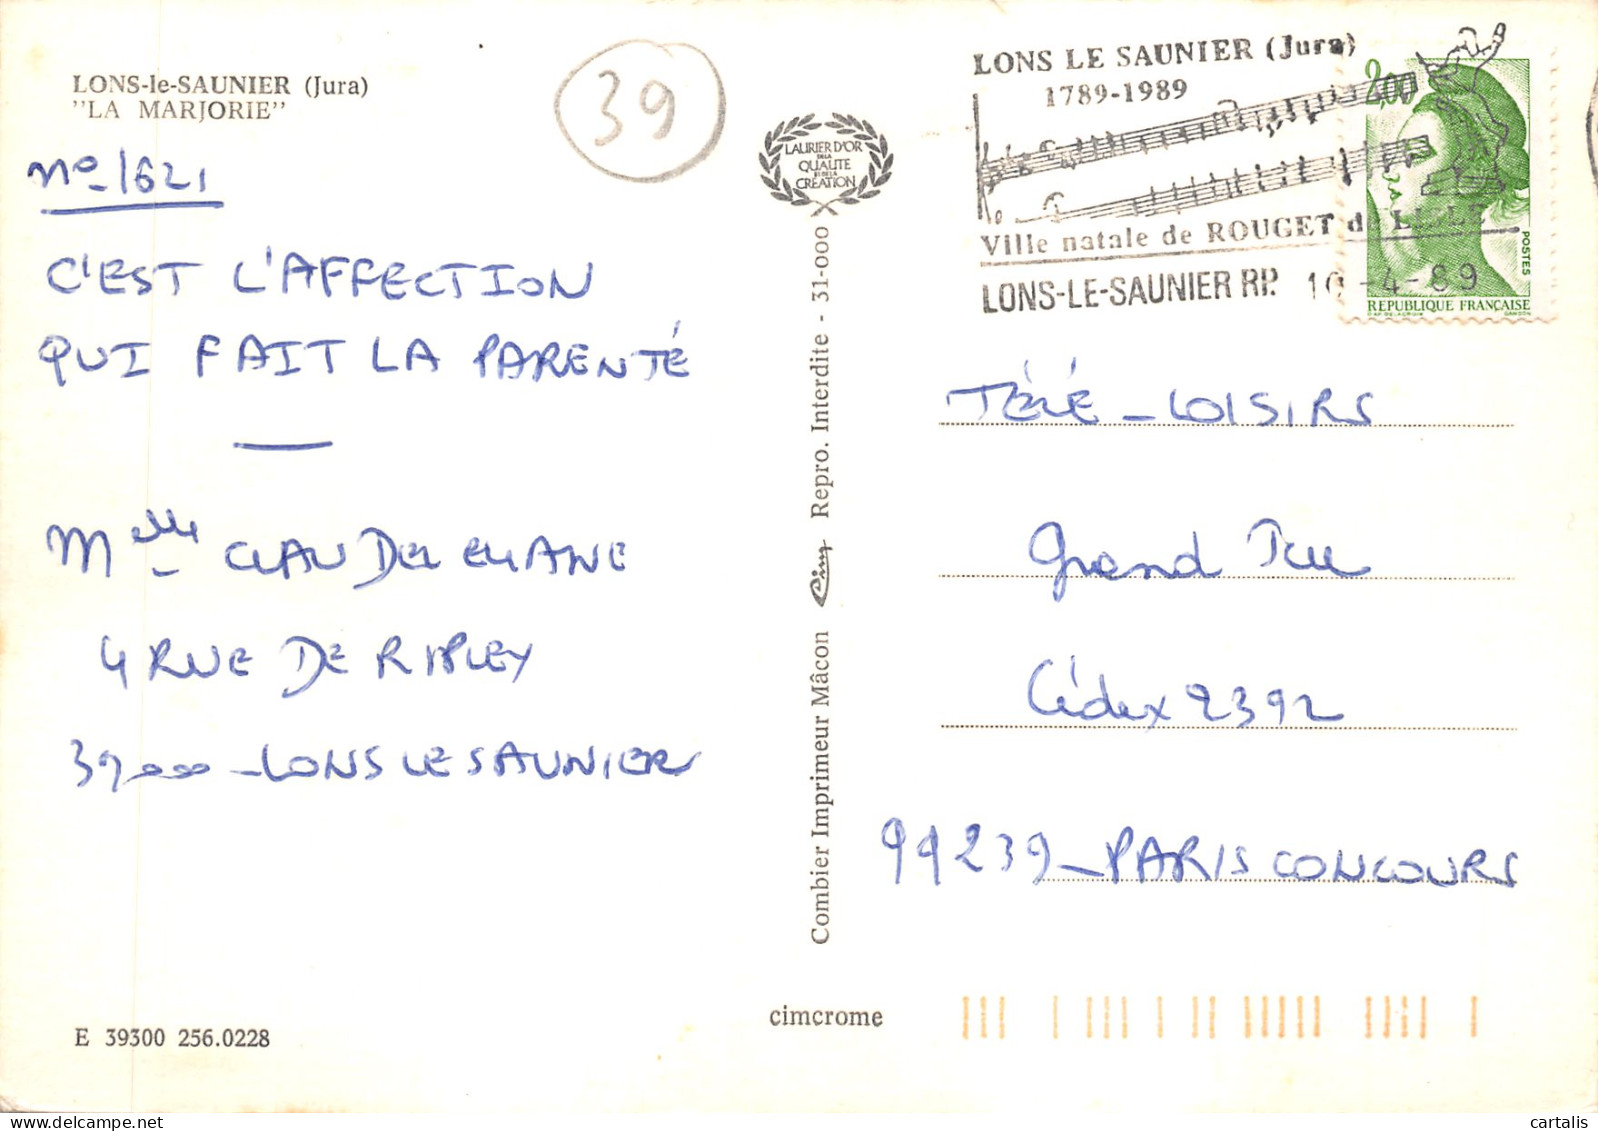 LONS-le-SAUNIER (Jura)
"LA MARJORIE"
39
no-1621
C'EST L'AFFECTION
QUI FAIT LA PARENTÉ
Melle CLAUDEL ELIANE
4 RUE DE RIPLEY
39000-LONS LE SAUNIER
E 39300 256.0228
LAURIER D'OR
DE LA
QUALITE
ET DE LA
CRÉATION
Combier Imprimeur Mâcon Cim Repro. Interdite - 31-000
cimcrome
LONS LE SAUNIER (Jura)
1789-1989
Ville natale de ROUGET de LISLE
LONS-LE-SAUNIER RP. 10-4-89
2,00
POSTES
REPUBLIQUE FRANÇAISE
D'AP. DELACROIX GANDON
TÉLÉ-LOISIRS
Grand Jeu
Cédex 2392
99239-PARIS CONCOURS
cartalis.com